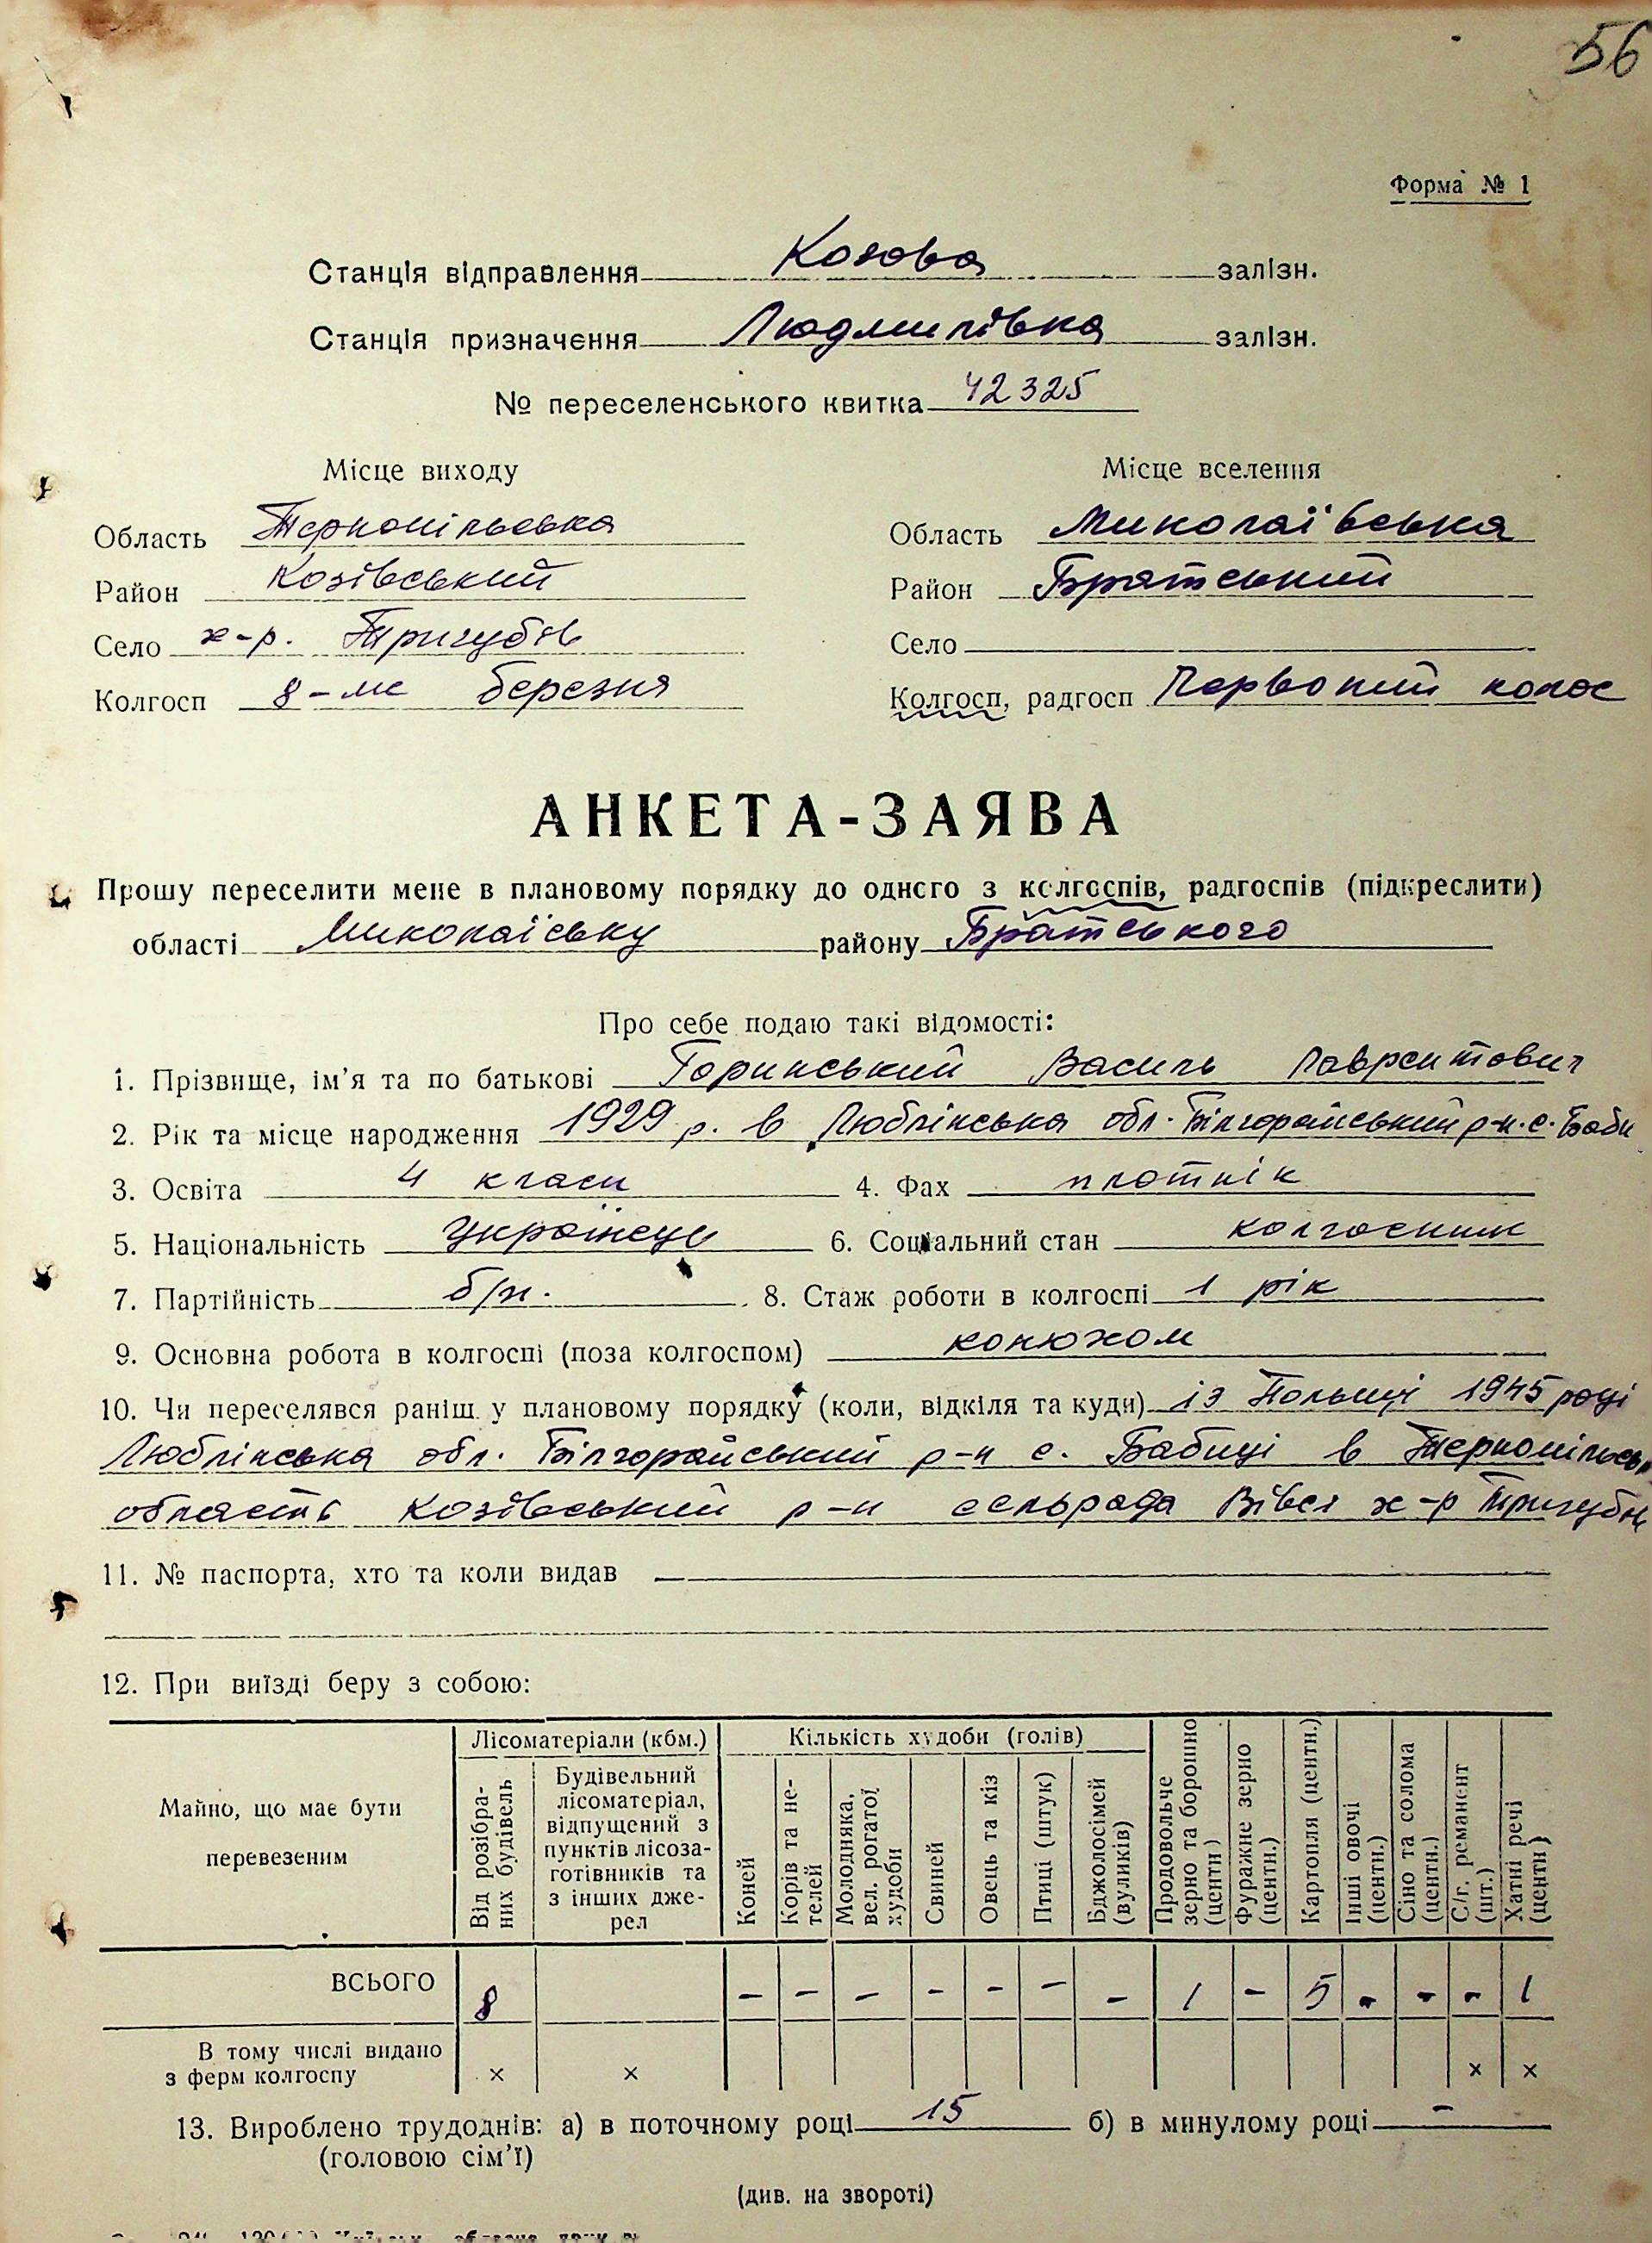 56
Форма № 1
Станція відправлення Козова залізн.
Станція призначення Людмилівка залізн.
№ переселенського квитка 42325
Місце виходу
Місце вселення
Область Тернопільська
Область Миколаївська
Район Козівський
Район Братський
Село х-р. Тригубів
Село
Колгосп 8-ме березня
Колгосп, радгосп Червоний колос
АНКЕТА-ЗАЯВА
Прошу переселити мене в плановому порядку до одного з колгоспів, радгоспів (підкреслити)
області Миколаїську району Братського
Про себе подаю такі відомості:
1. Прізвище, ім'я та по батькові Горинський Василь Лаврентович
2. Рік та місце народження 1929 р. в Люблінська обл. Білгорайський р-н. с. Баби
3. Освіта 4 класи 4. Фах плотнік
5. Національність Українець 6. Соціальний стан колгосник
7. Партійність б/п. 8. Стаж роботи в колгоспі 1 рік
9. Основна робота в колгоспі (поза колгоспом) конюхом
10. Чи переселявся раніш у плановому порядку (коли, відкіля та куди) із Польщі 1945 році
Люблінська обл. Білгорайський р-н с. Бабиці в Тернопільсь
область Козівський р-н сельрада Вівся х-р Тригубів
11. № паспорта, хто та коли видав —
12. При виїзді беру з собою:
Майно, що має бути перевезеним
Лісоматеріали (кбм.)
Кількість худоби (голів)
Від розібраних будівель
Будівельний лісоматеріал, відпущений з пунктів лісозаготівників та з інших джерел
Коней
Корів та нетелей
Молодняка, вел. рогатої худоби
Свиней
Овець та кіз
Птиці (штук)
Бджолосімей (вуликів)
Продовольче зерно та борошно (центн)
Фуражне зерно (центн.)
Картопля (центн.)
Інші овочі (центн.)
Сіно та солома (центн.)
С/г. реманент (шт.)
Хатні речі (центн)
ВСЬОГО 8 - - - - - - - 1 - 5 - - - 1
В тому числі видано
з ферм колгоспу × × × ×
13. Вироблено трудоднів: а) в поточному році 15 б) в минулому році -
(головою сім'ї)
(див. на звороті)